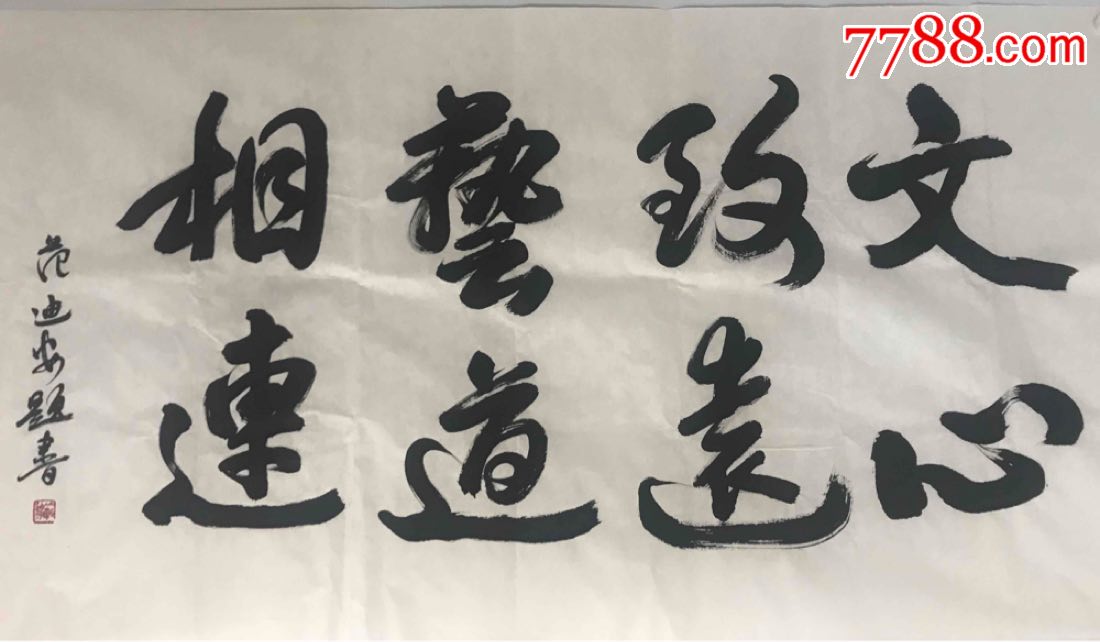 文心
致遠
藝道
相連
范迪安題書
7788.com